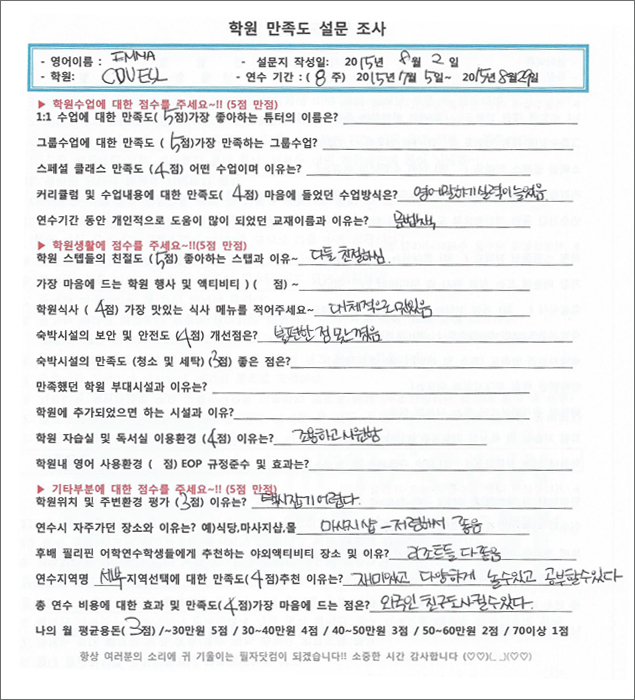 학원 만족도 설문 조사
- 영어이름 : EMMA - 설문지 작성일: 2015년 8월 2일
- 학원: CDUESL - 연수 기간 : ( 8 주) 2015년 7월 5일~ 2015년 8월 29일
▶ 학원수업에 대한 점수를 주세요~!! (5점 만점)
1:1 수업에 대한 만족도( 5점)가장 좋아하는 튜터의 이름은?
그룹수업에 대한 만족도 ( 5점)가장 만족하는 그룹수업?
스페셜 클래스 만족도 ( 4점) 어떤 수업이며 이유는?
커리큘럼 및 수업내용에 대한 만족도( 4점) 마음에 들었던 수업방식은? 영어말하기 실력이 늘었음
연수기간 동안 개인적으로 도움이 많이 되었던 교재이름과 이유는? 문법책,
▶ 학원생활에 점수를 주세요~!!(5점 만점)
학원 스텝들의 친절도 ( 5점) 좋아하는 스탭과 이유~ 다들 친절하심.
가장 마음에 드는 학원 행사 및 액티비티 ) ( 점) ~
학원식사 ( 4점) 가장 맛있는 식사 메뉴를 적어주세요~ 대체적으로 맛있음
숙박시설의 보안 및 안전도 ( 4점) 개선점은? 불편한 점 못 느꼈음
숙박시설의 만족도 (청소 및 세탁) ( 3점) 좋은 점은?
만족했던 학원 부대시설과 이유는?
학원에 추가되었으면 하는 시설과 이유?
학원 자습실 및 독서실 이용환경 ( 4점) 이유는? 조용하고 시원함
학원내 영어 사용환경 ( 점) EOP 규정준수 및 효과는?
▶ 기타부분에 대한 점수를 주세요~!! (5점 만점)
학원위치 및 주변환경 평가 ( 3점) 이유는? 택시잡기어렵다.
연수시 자주가던 장소와 이유는? 예)식당,마사지샵,몰 마사지샵 - 저렴해서 좋음
후배 필리핀 어학연수학생들에게 추천하는 야외액티비티 장소 및 이유? 리조트들 다좋음
연수지역명 세부 지역선택에 대한 만족도( 4점)추천 이유는? 재미있고 다양하게 놀수있고 공부할수있다
총 연수 비용에 대한 효과 및 만족도( 4점)가장 마음에 드는 점은? 외국인 친구도 사귈수있다.
나의 월 평균용돈( 3점) /~30만원 5점 / 30~40만원 4점 / 40~50만원 3점 / 50~60만원 2점 / 70이상 1점
항상 여러분의 소리에 귀 기울이는 필자닷컴이 되겠습니다!! 소중한 시간 감사합니다 (♡♡)(_ _)(♡♡)